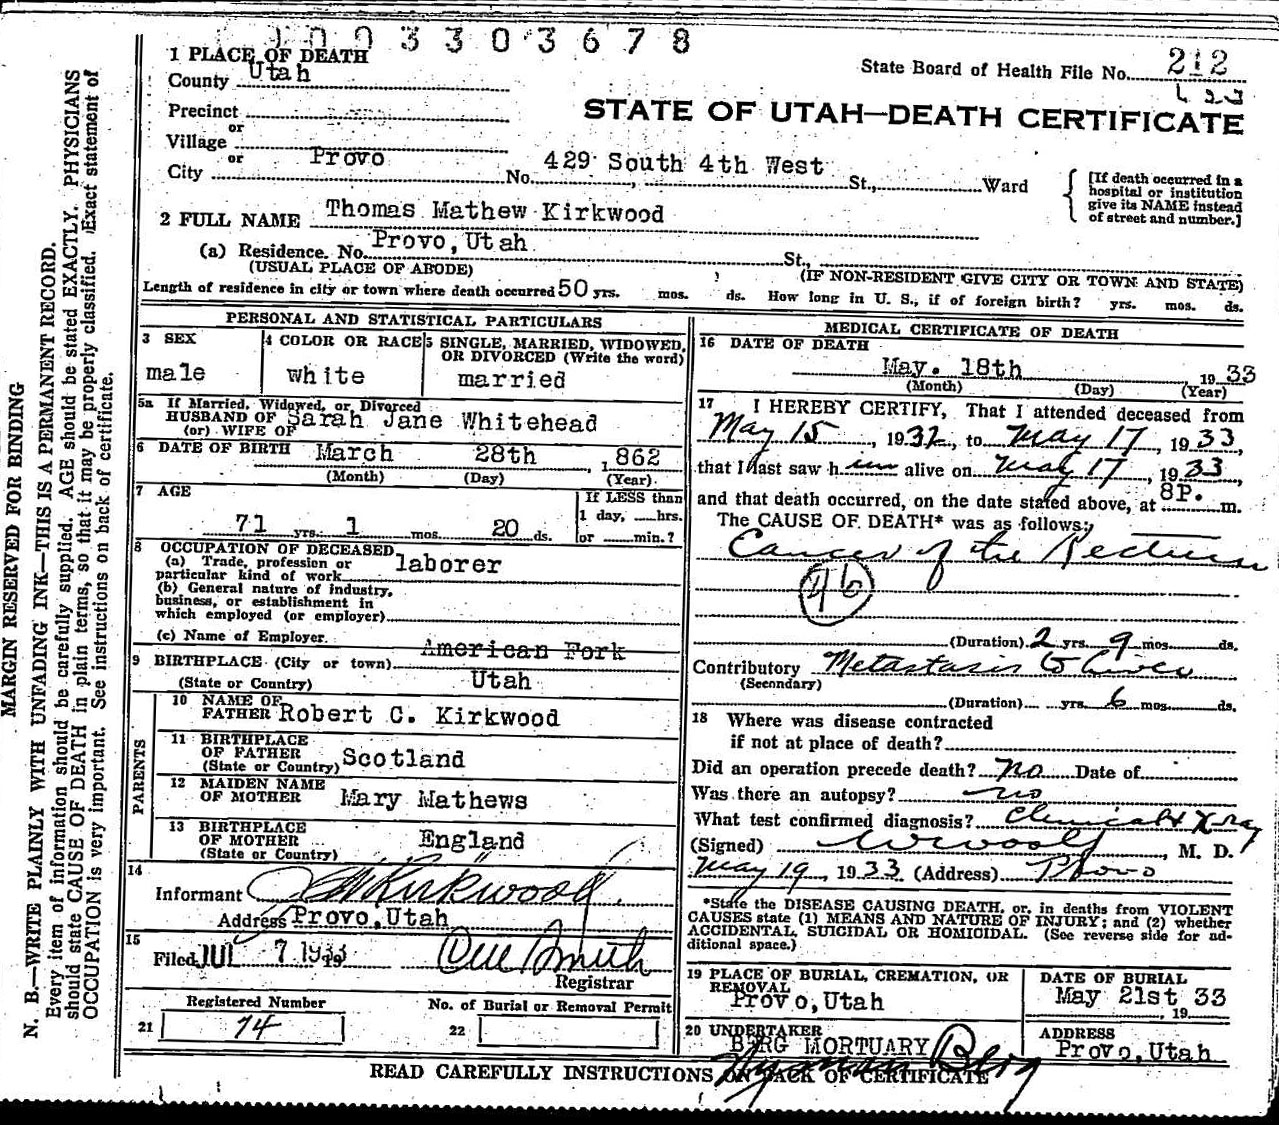 0003303678
1 PLACE OF DEATH
County Utah
State Board of Health File No. 212
STATE OF UTAH—DEATH CERTIFICATE
Precinct
or
Village
or
City Provo No. 429 South 4th West St., Ward
[If death occurred in a hospital or institution give its NAME instead of street and number.]
2 FULL NAME Thomas Mathew Kirkwood
(a) Residence. No. Provo, Utah St.,
(USUAL PLACE OF ABODE) (IF NON-RESIDENT GIVE CITY OR TOWN AND STATE)
Length of residence in city or town where death occurred 50 yrs. mos. ds. How long in U. S., if of foreign birth? yrs. mos. ds.
PERSONAL AND STATISTICAL PARTICULARS
3 SEX
male
4 COLOR OR RACE
white
5 SINGLE, MARRIED, WIDOWED, OR DIVORCED (Write the word)
married
5a If Married, Widowed, or Divorced
HUSBAND OF Sarah Jane Whitehead
(or) WIFE OF
6 DATE OF BIRTH March 28th, 1862
(Month) (Day) (Year)
7 AGE
71 yrs. 1 mos. 20 ds.
If LESS than
1 day, hrs.
or min.?
8 OCCUPATION OF DECEASED
(a) Trade, profession or
particular kind of work laborer
(b) General nature of industry,
business, or establishment in
which employed (or employer)
(c) Name of Employer
9 BIRTHPLACE (City or town) American Fork
(State or Country) Utah
PARENTS
10 NAME OF
FATHER Robert C. Kirkwood
11 BIRTHPLACE
OF FATHER
(State or Country) Scotland
12 MAIDEN NAME
OF MOTHER Mary Mathews
13 BIRTHPLACE
OF MOTHER
(State or Country) England
14
Informant Kirkwood
Address Provo, Utah
15
Filed JUL 7 1933 19 Smith
Registrar
Registered Number
21 74
No. of Burial or Removal Permit
22
MEDICAL CERTIFICATE OF DEATH
16 DATE OF DEATH
May. 18th 1933
(Month) (Day) (Year)
17 I HEREBY CERTIFY, That I attended deceased from
May 15, 1932, to May 17, 1933,
that I last saw him alive on May 17, 1933
and that death occurred, on the date stated above, at 8P. m.
The CAUSE OF DEATH* was as follows:
Cancer of the Rectum
46
(Duration) 2 yrs. 9 mos. ds.
Contributory Metastasis to Liver
(Secondary)
(Duration) yrs. 6 mos. ds.
18 Where was disease contracted
if not at place of death?
Did an operation precede death? no Date of
Was there an autopsy? no
What test confirmed diagnosis? Clinical & X-ray
(Signed) Woolf, M. D.
May 19, 1933 (Address) Provo
*State the DISEASE CAUSING DEATH, or, in deaths from VIOLENT
CAUSES state (1) MEANS AND NATURE OF INJURY; and (2) whether
ACCIDENTAL, SUICIDAL OR HOMICIDAL. (See reverse side for ad-
ditional space.)
19 PLACE OF BURIAL, CREMATION, OR
REMOVAL
Provo, Utah
DATE OF BURIAL
May 21st 33
, 19
20 UNDERTAKER
BERG MORTUARY
ADDRESS
Provo, Utah
READ CAREFULLY INSTRUCTIONS ON BACK OF CERTIFICATE
MARGIN RESERVED FOR BINDING
N. B.—WRITE PLAINLY WITH UNFADING INK—THIS IS A PERMANENT RECORD.
Every item of information should be carefully supplied. AGE should be stated EXACTLY. PHYSICIANS
should state CAUSE OF DEATH in plain terms, so that it may be properly classified. Exact statement of
OCCUPATION is very important. See instructions on back of certificate.